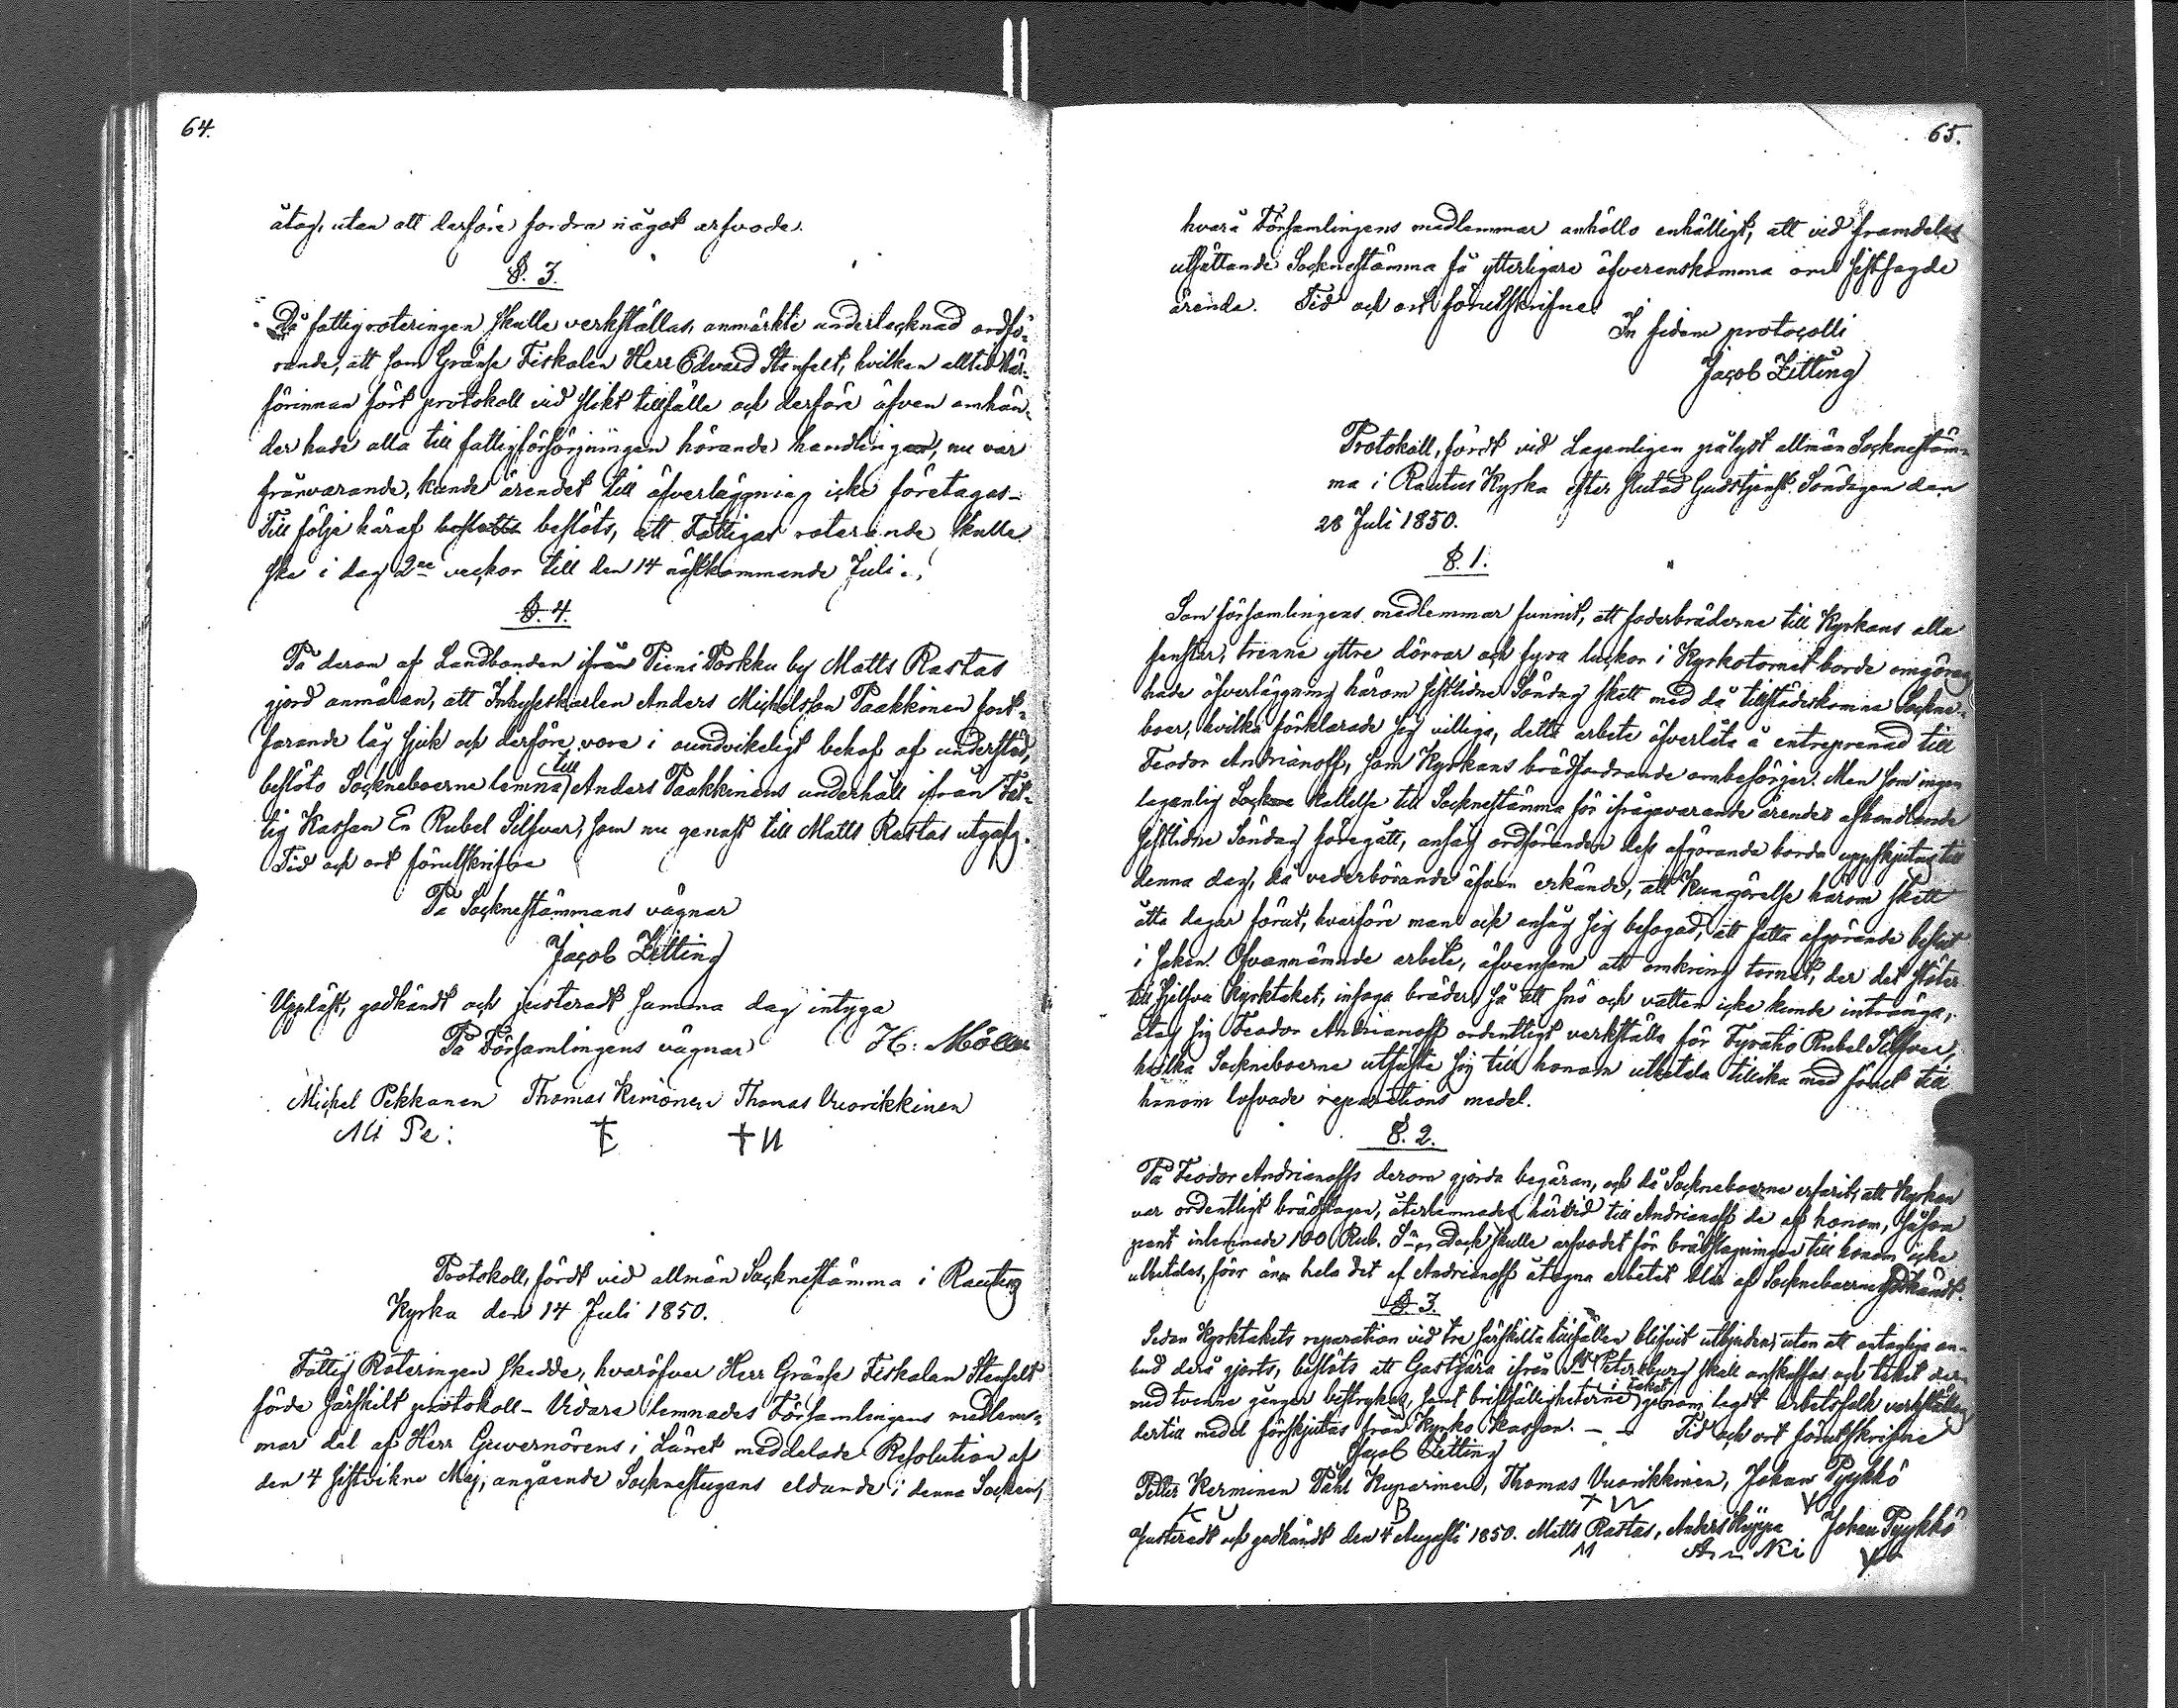 64.
åtog, utan att derföre fordra något arfvode.
§. 3.
Då fattigroteringen skulle verkställas, anmärkte undertecknad ordfö-
rande, att som Gränse Fiskalen Herr Edvard Stenfelt, hvilken alltid här-
förinnan fört protokoll vid slikt tillfälle och derföre äfven omhän-
der hade alla till fattigförsörjningen hörande handlingar, nu var
frånvarande, kunde ärendet till öfverläggning icke företagas –
Till följe häraf beslöts, att Fattigas roterande skulle
ske i dag 2ne veckor till den 14 nästkommande Juli.
§. 4.
På derom af Landbonden ifrån Pieni Porkku by Matts Rastas
gjord anmälan, att Inhyseskarlen Anders Michelsson Paakkinen fort-
farande låg sjuk och derföre vore i oundvikeligt behof af understöd,
beslöto Sockneboerne lemna till Anders Paakkinens underhåll ifrån Fat-
tig Kassan En Rubel Silfver, som nu genast till Matts Rastas utgafs.
Tid och ort förutskrifne
På Socknestämmans vägnar
Jacob Zitting
Uppläst, godkändt och justeradt samma dag intyga
På Församlingens vägnar H: Möller
Michel Pekkanen Thomas Kimonen Thomas Vuorikkinen
Mi Pe:
Protokoll, fördt vid allmän Socknestämma i Rautus
Kyrka den 14 Juli 1850.
Fattig Roteringen skedde, hvaröfver Herr Gränse Fiskalen Stenfelt
förde särskilt protokoll – Vidare lemnades Församlingens medlem-
mar del af Herr Guvernörens i Länet meddelade Resolution af
den 4 sistvikne Maj, angående Socknestugans eldande i denna Socken,
65.
hvarå Församlingens medlemmar anhöllo enhälligt, att vid framdeles
utsättande Sockneståmma få ytterligare öfverenskomma om sistsagde
ärende. Tid och ort förutskrifne.
In fidem protocolli
Jacob Zitting
Protokoll, fördt vid Lagenligen pålyst allmän Sockneståm-
ma i Rautus Kyrka efter slutad Gudstjenst Söndagen den
28 Juli 1850.
§. 1.
Som församlingens medlemmar funnit, att foderbräderne till Kyrkans alla
fenster, trenne yttre dörrar och fyra luckor i Kyrkotornet borde omgöras,
hade öfverläggning härom sistlidne Söndag skett med då tillstädeskomne Sockne-
boer, hvilka förklarade sig villiga, detta arbete öfverlåta å entreprenad till
Feodor Andrianoff, som Kyrkans brädfodrande ombesörjer. Men som ingen
lagenlig kallelse till Sockneståmma för ifrågavarande ärendes afhandlande
sistlidne Söndag föregått, ansåg ordföranden dess afgörande borda uppskjutas till
denna dag, då vederbörande äfven erkände, att Kungörelse härom skett
åtta dagar förut, hvarföre man och ansåg sig befogad, att fatta afgörande beslut
i saken. Ofvannämnde arbete, äfvensom att omkring tornet, der det stöter
till sjelfva Kyrktaket, infoga bräder, så att snö och vatten icke kunde intränga,
åtog sig Feodor Andrianoff ordentligt verkställa för Fyratio Rubel Silfver,
hvilka Sockneboerne utfäste sig till honom utbetala tillika med förut till
honom lofvade reparations medel.
§. 2.
På Feodor Andrianoffs derom gjorda begäran, och då Sockneboerne erfarit, att Kyrkan
var ordentligt brädslagen, återlemnades härvid till Andrianoff de af honom, såsom
pant inlemnade 100 Rub. Sr. Dock skulle arfvodet för brädslagningen till honom icke
utbetalas, förr än hela det af Andrianoff åtagna arbetet blir af Sockneboerne godkändt.
§. 3.
Sedan Kyrktakets reparation vid tre särskilta tillfällen blifvit utbjuden, utan att antagliga an-
bud derå gjorts, beslöts att Gastjära ifrån St Petersburg skall anskaffas och taket der-
med tvenne gånger bestrykas, samt bristfälligheterne i taket genom legdt arbetsfolk verkställas,
dertill medel förskjutas från Kyrko Kassan. – – Tid och ort förutskrifne
Jacob Zitting
Petter Kerminen Påhl Kuparinen, Thomas Vuorikkinen, Johan Pyykkö
K U B
Justeradt och godkändt den 4 Augusti 1850. Matts Rastas, Anders Köppä Johan Pyykkö